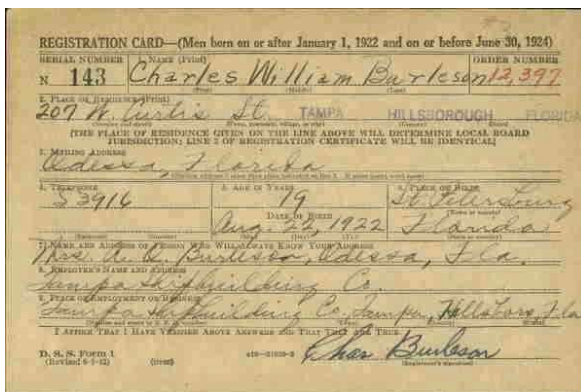 REGISTRATION CARD—(Men born on or after January 1, 1922 and on or before June 30, 1924)
SERIAL NUMBER 1. NAME (Print) ORDER NUMBER
N 143 Charles William Burleson 12,397
(First) (Middle) (Last)
2. PLACE OF RESIDENCE (Print)
207 W. Curtis St. TAMPA HILLSBOROUGH FLORIDA
(THE PLACE OF RESIDENCE GIVEN ON THE LINE ABOVE WILL DETERMINE LOCAL BOARD
JURISDICTION; LINE 2 OF REGISTRATION CERTIFICATE WILL BE IDENTICAL)
3. MAILING ADDRESS
Odessa, Florida
4. TELEPHONE 5. AGE IN YEARS 6. PLACE OF BIRTH
S3916 19 St. Petersburg
DATE OF BIRTH (Town or county)
Aug. 22, 1922 Florida
7. NAME AND ADDRESS OF PERSON WHO WILL ALWAYS KNOW YOUR ADDRESS
Mrs. A. L. Burleson, Odessa, Fla.
8. EMPLOYER'S NAME AND ADDRESS
Tampa Shipbuilding Co.
9. PLACE OF EMPLOYMENT OR BUSINESS
Tampa Shipbuilding Co. Tampa, Hillsboro, Fla
I AFFIRM THAT I HAVE VERIFIED ABOVE ANSWERS AND THAT THEY ARE TRUE.
D. S. S. Form 1 Chas Burleson
(Revised 6-9-42) (over) (Registrant's signature)